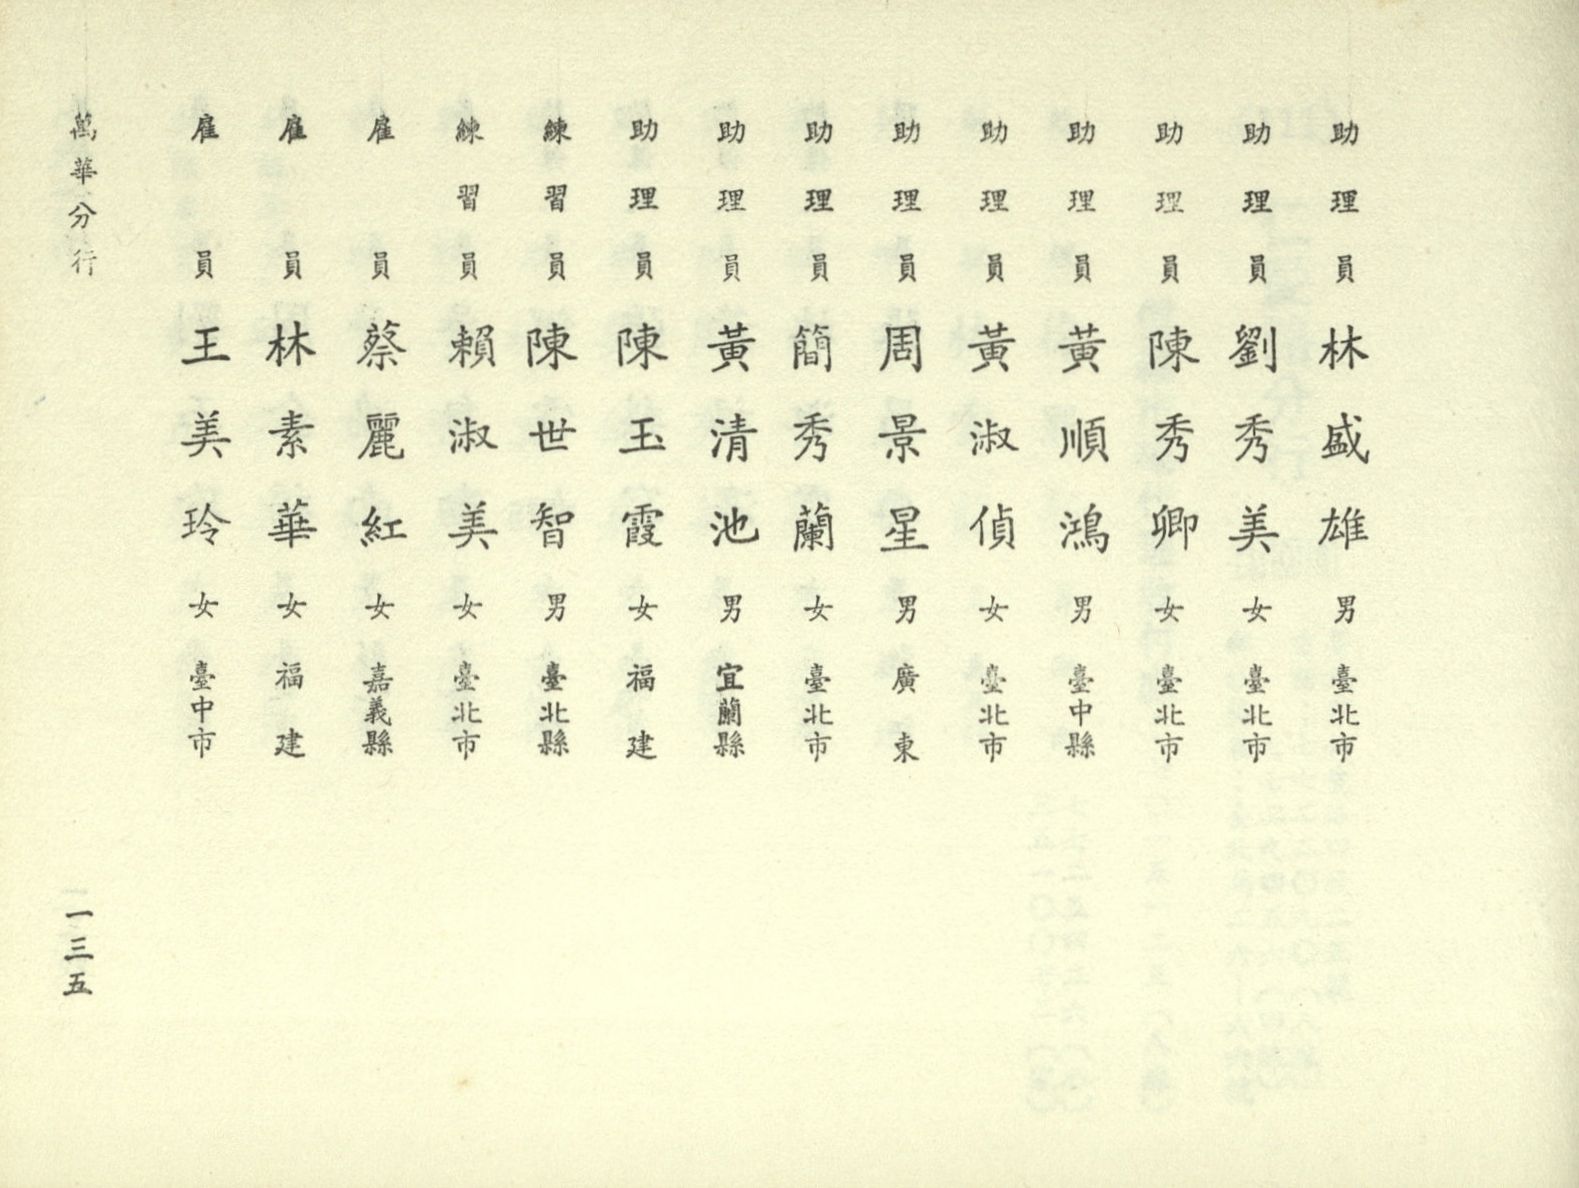 助理員 林盛雄 男 臺北市
助理員 劉秀美 女 臺北市
助理員 陳秀卿 女 臺北市
助理員 黃順鴻 男 臺中縣
助理員 黃淑偵 女 臺北市
助理員 周景星 男 廣東
助理員 簡秀蘭 女 臺北市
助理員 黃清池 男 宜蘭縣
助理員 陳玉霞 女 福建
練習員 陳世智 男 臺北縣
練習員 賴淑美 女 臺北市
雇員 蔡麗紅 女 嘉義縣
雇員 林素華 女 福建
雇員 王美玲 女 臺中市
萬華分行
一三五